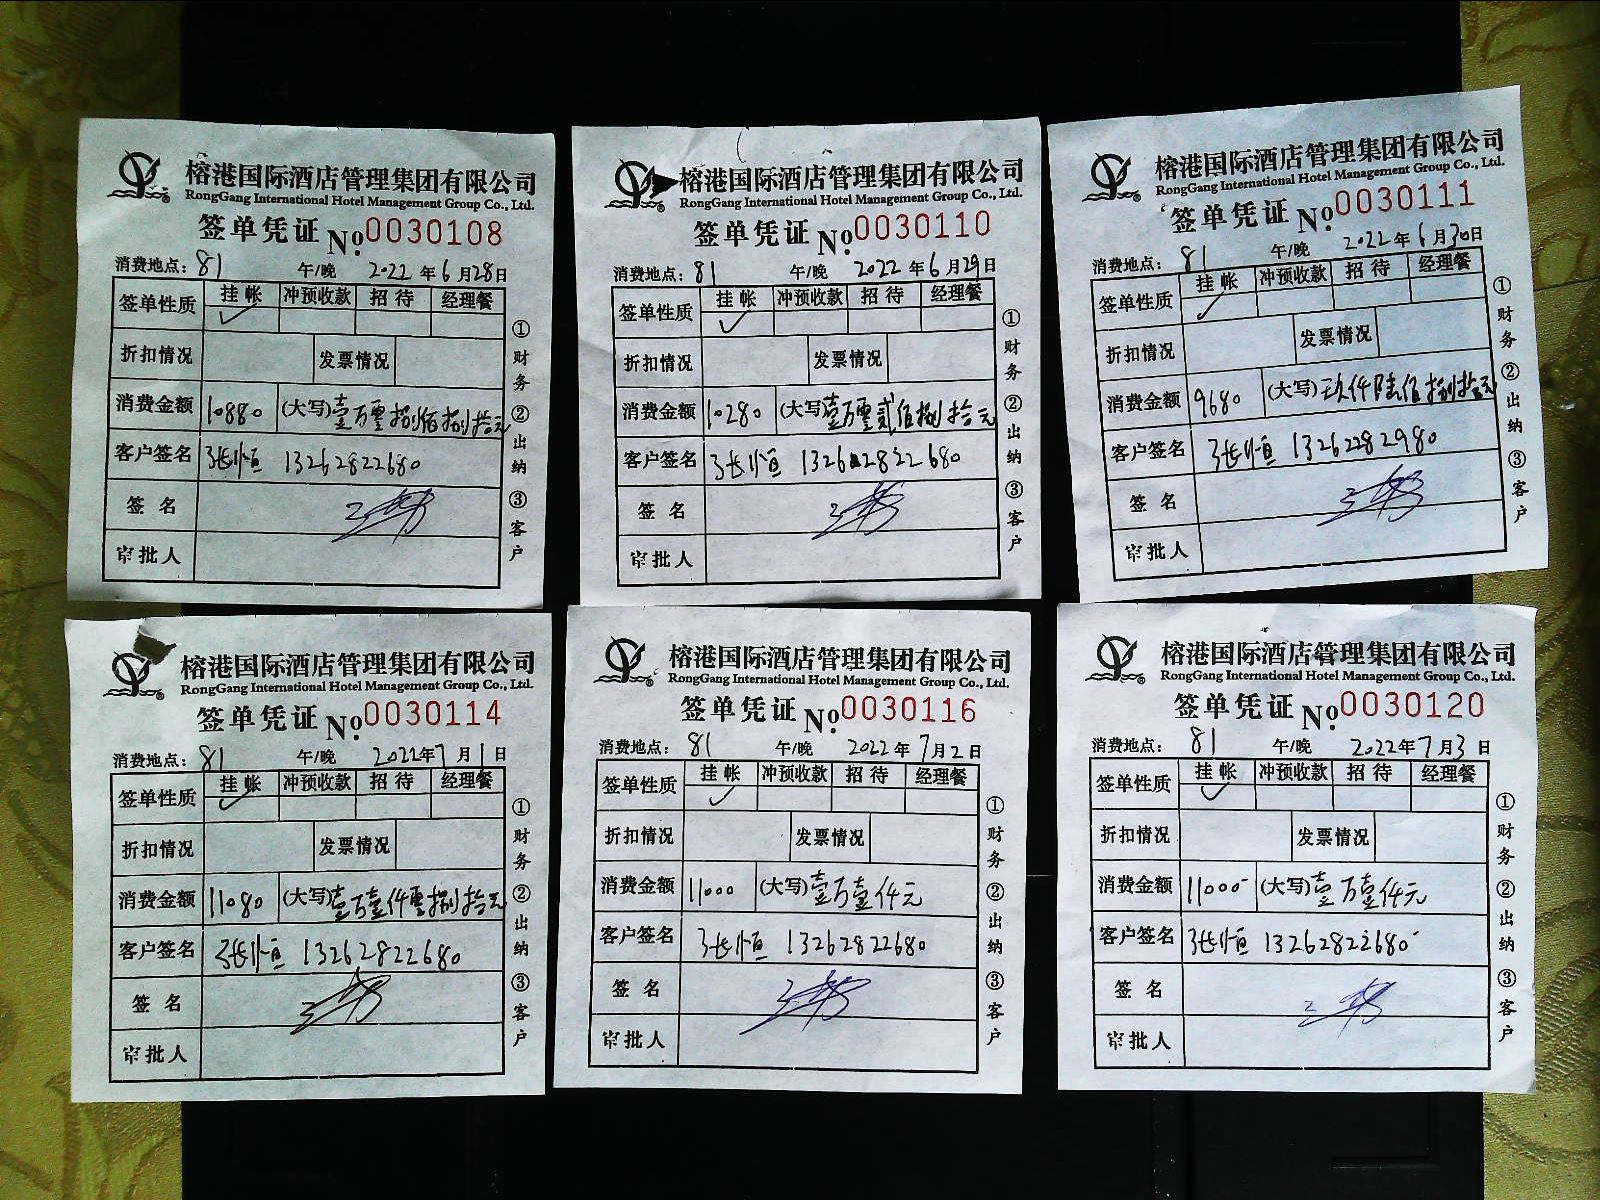 榕港国际酒店管理集团有限公司
RongGang International Hotel Management Group Co., Ltd.
签单凭证 No.0030108
消费地点: 81 午/晚 2022年6月28日
签单性质 挂帐 冲预收款 招待 经理餐
✓
折扣情况 发票情况
消费金额 10880 (大写)壹万零捌佰捌拾元
客户签名 张恒 13262822680
签名
审批人
①财务 ②出纳 ③客户
榕港国际酒店管理集团有限公司
RongGang International Hotel Management Group Co., Ltd.
签单凭证 No.0030110
消费地点: 81 午/晚 2022年6月29日
签单性质 挂帐 冲预收款 招待 经理餐
✓
折扣情况 发票情况
消费金额 10280 (大写)壹万零贰佰捌拾元
客户签名 张恒 13262822680
签名
审批人
①财务 ②出纳 ③客户
榕港国际酒店管理集团有限公司
RongGang International Hotel Management Group Co., Ltd.
签单凭证 No.0030111
消费地点: 81 午/晚 2022年6月30日
签单性质 挂帐 冲预收款 招待 经理餐
✓
折扣情况 发票情况
消费金额 9680 (大写)玖仟陆佰捌拾元
客户签名 张恒 13262282980
签名
审批人
①财务 ②出纳 ③客户
榕港国际酒店管理集团有限公司
RongGang International Hotel Management Group Co., Ltd.
签单凭证 No.0030114
消费地点: 81 午/晚 2022年7月1日
签单性质 挂帐 冲预收款 招待 经理餐
✓
折扣情况 发票情况
消费金额 11080 (大写)壹万壹仟零捌拾元
客户签名 张恒 13262822680
签名
审批人
①财务 ②出纳 ③客户
榕港国际酒店管理集团有限公司
RongGang International Hotel Management Group Co., Ltd.
签单凭证 No.0030116
消费地点: 81 午/晚 2022年7月2日
签单性质 挂帐 冲预收款 招待 经理餐
✓
折扣情况 发票情况
消费金额 11000 (大写)壹万壹仟元
客户签名 张恒 13262822680
签名
审批人
①财务 ②出纳 ③客户
榕港国际酒店管理集团有限公司
RongGang International Hotel Management Group Co., Ltd.
签单凭证 No.0030120
消费地点: 81 午/晚 2022年7月3日
签单性质 挂帐 冲预收款 招待 经理餐
✓
折扣情况 发票情况
消费金额 11000 (大写)壹万壹仟元
客户签名 张恒 13262822680
签名
审批人
①财务 ②出纳 ③客户